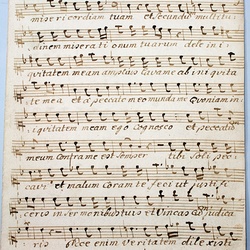 misericordiam tuam et secundum multitu
dinem miserati onum tuarum dele ini
quitatem meam amplius lava me ab iniquita
te mea et a peccato meo munda me Quoniam in
iquitatem meam ego cognosco et peccatum
meum contra me est semper tibi soli pec
cavi et malum coram te feci ut justifi
ceris in sermonibus tuis et vincas cum judica
ris Ecce enim veritatem dilexisti